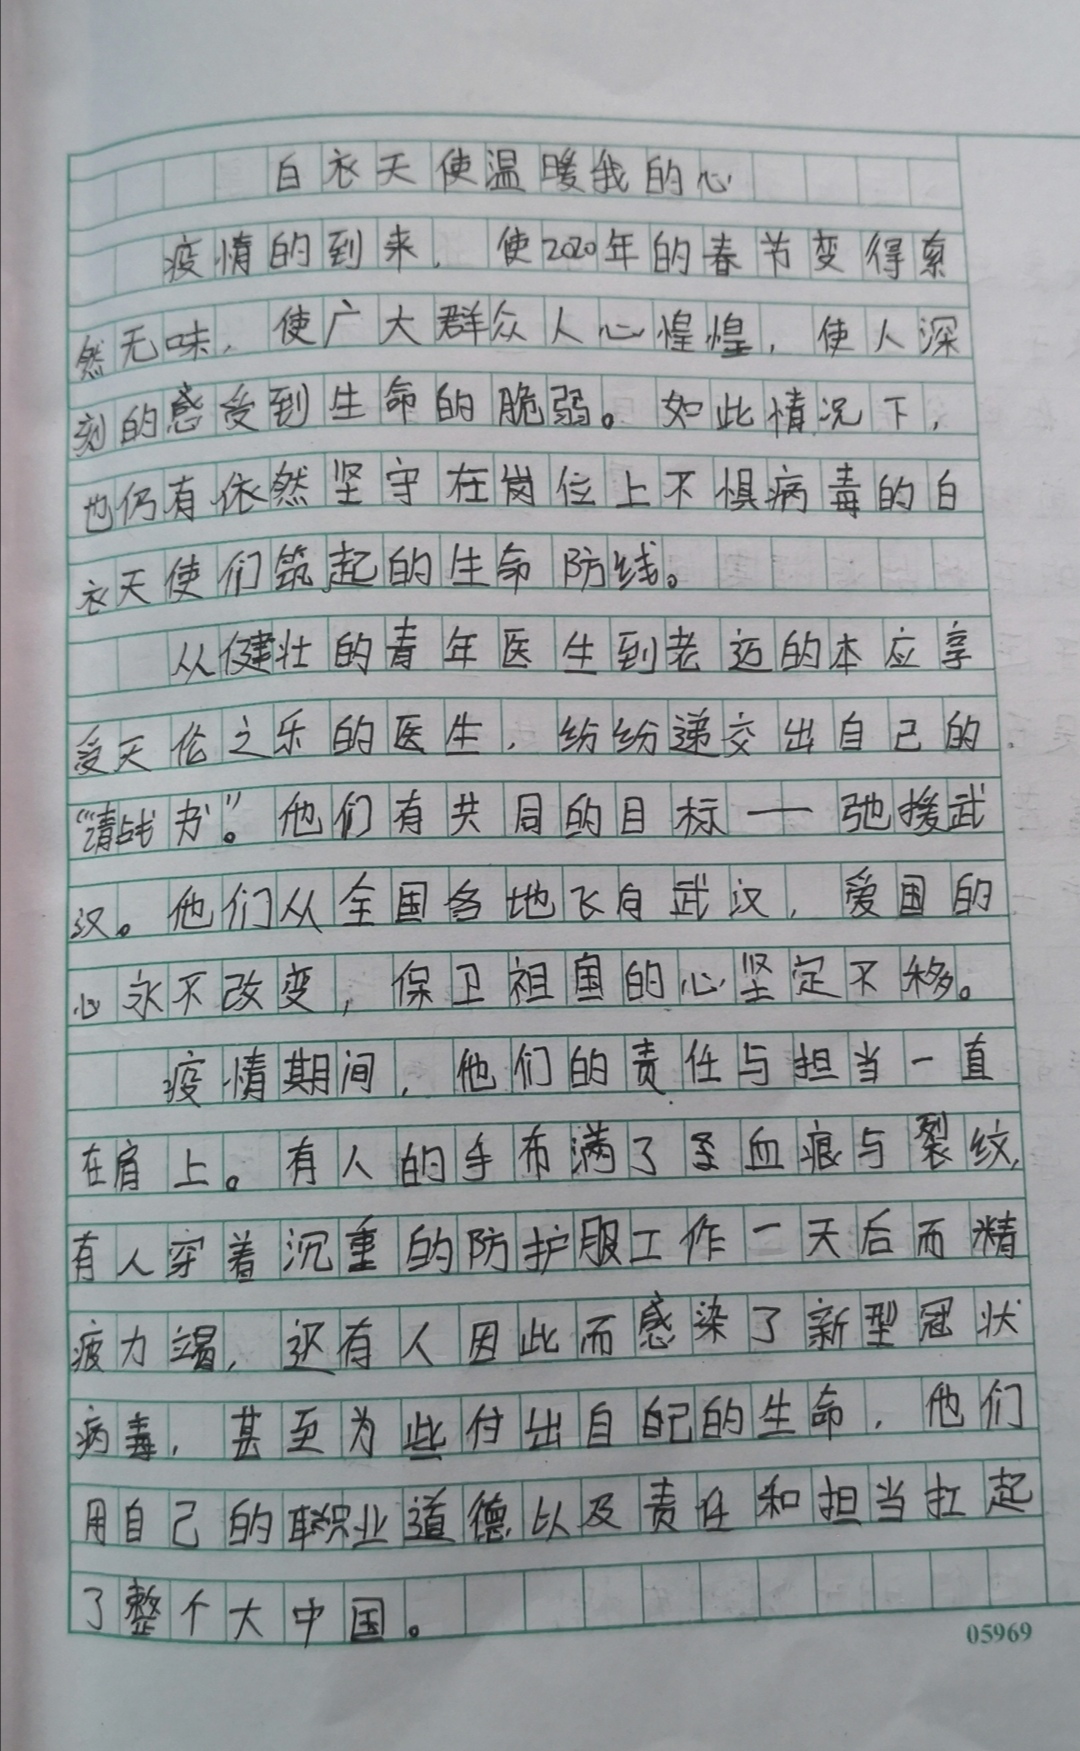 白衣天使温暖我的心
疫情的到来，使2020年的春节变得索
然无味，使广大群众人心惶惶，使人深
刻的感受到生命的脆弱。如此情况下，
也仍有依然坚守在岗位上不惧病毒的白
衣天使们筑起的生命防线。
从健壮的青年医生到老迈的本应享
受天伦之乐的医生，纷纷递交出自己的
“请战书”。他们有共同的目标——弛援武
汉。他们从全国各地飞向武汉，爱国的
心永不改变，保卫祖国的心坚定不移。
疫情期间，他们的责任与担当一直
在肩上。有人的手布满了血痕与裂纹，
有人穿着沉重的防护服工作一天后而精
疲力竭，还有人因此而感染了新型冠状
病毒，甚至为此付出自自己的生命，他们
用自己的职业道德以及责任和担当扛起
了整个大中国。
05969